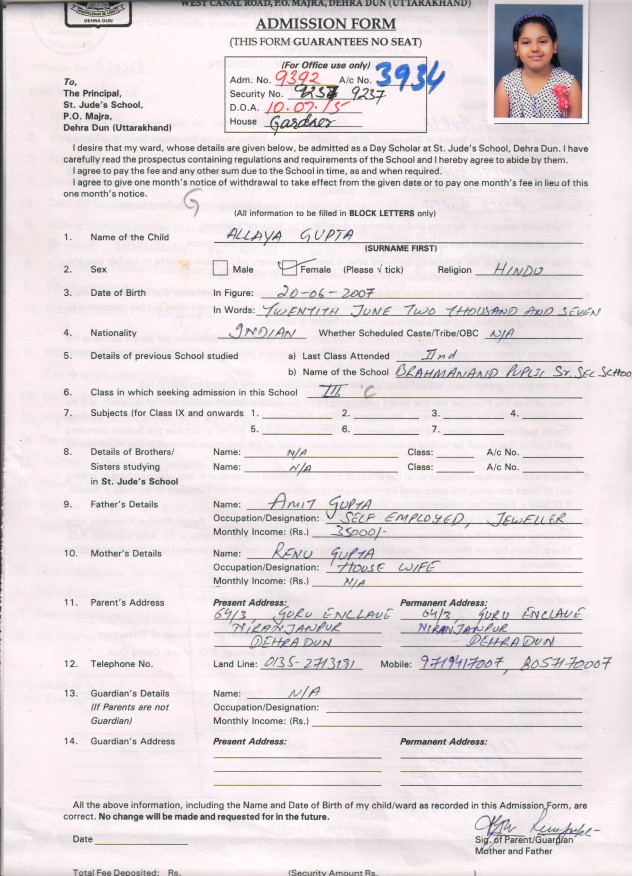 WEST CANAL ROAD, P.O. MAJRA, DEHRA DUN (UTTARAKHAND)
DEHRA DUN
ADMISSION FORM
(THIS FORM GUARANTEES NO SEAT)
(For Office use only)
Adm. No. 9392 A/c No. 3934
Security No. 9237
D.O.A. 10.07.15
House Gardner
To,
The Principal,
St. Jude's School,
P.O. Majra,
Dehra Dun (Uttarakhand)
I desire that my ward, whose details are given below, be admitted as a Day Scholar at St. Jude's School, Dehra Dun. I have
carefully read the prospectus containing regulations and requirements of the School and I hereby agree to abide by them.
I agree to pay the fee and any other sum due to the School in time, as and when required.
I agree to give one month's notice of withdrawal to take effect from the given date or to pay one month's fee in lieu of this
one month's notice.
G
(All information to be filled in BLOCK LETTERS only)
1. Name of the Child ALLAYA GUPTA
(SURNAME FIRST)
2. Sex Male Female (Please √ tick) Religion HINDU
3. Date of Birth In Figure: 20-06-2007
In Words: TWENTITH JUNE TWO THOUSAND AND SEVEN
4. Nationality INDIAN Whether Scheduled Caste/Tribe/OBC N/A
5. Details of previous School studied a) Last Class Attended IInd
b) Name of the School BRAHMANAND PUPLIC Sr. SEC SCHOO
6. Class in which seeking admission in this School III C
7. Subjects (for Class IX and onwards 1. 2. 3. 4.
5. 6. 7.
8. Details of Brothers/ Name: N/A Class: A/c No.
Sisters studying Name: N/A Class: A/c No.
in St. Jude's School
9. Father's Details Name: AMIT GUPTA
Occupation/Designation: SELF EMPLOYED, JEWELLER
Monthly Income: (Rs.) 35000/-
10. Mother's Details Name: RENU GUPTA
Occupation/Designation: HOUSE WIFE
Monthly Income: (Rs.) N/A
11. Parent's Address Present Address: Permanent Address:
64/3, GURU ENCLAVE 64/3, GURU ENCLAVE
NIRANJANPUR NIRANJANPUR
DEHRADUN DEHRADUN
12. Telephone No. Land Line: 0135-2713191 Mobile: 9719417007, 8057170007
13. Guardian's Details Name: N/A
(If Parents are not Occupation/Designation:
Guardian) Monthly Income: (Rs.)
14. Guardian's Address Present Address: Permanent Address:
All the above information, including the Name and Date of Birth of my child/ward as recorded in this Admission Form, are
correct. No change will be made and requested for in the future.
Date
Sig. of Parent/Guardian
Mother and Father
Total Fee Deposited: Rs. (Security Amount Rs. )